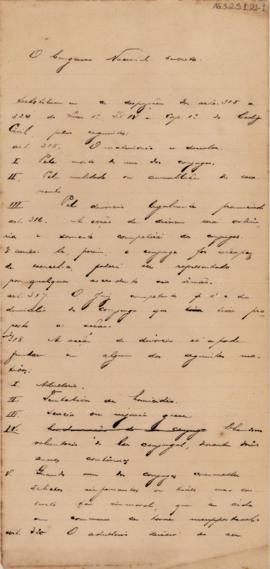 O Congresso Nacional decreta:
Substituam-se a disposições dos arts. 315 a
324 do Liv. 1º Tit IV e Cap. 1º do Codigo
Civil pelos seguintes:
art. 315. O matrimonio se dissolve:
I Pela morte de um dos conjuges.
II Pela nullidade ou annullação do casa
mento
III Pelo divorcio legalmente pronunciado
art. 316. A acção de divorcio será ordina
ria e somente competirá aos conjuges
§ unico. Se, porem, o conjuge for incapaz
de exercel-a, poderá ser representado
por qualquer ascendente ou irmão.
art. 317. O juiz competente é o do
domicilio do conjuge que
a acção.
318 A acção de divorcio só se póde
fundar em algum dos seguintes mo
tivos:
I Adulterio.
II Tentativa de homicidio.
III Sevicia ou injuria grave
IV Abandono
voluntario do lar conjugal, durante dois
annos continuos
V Quando um dos conjuges
infamantes ou tiver uma con
ducta immoral, que a vida
em commum se torne insupportavel
art. 320 O adulterio deixará de ser